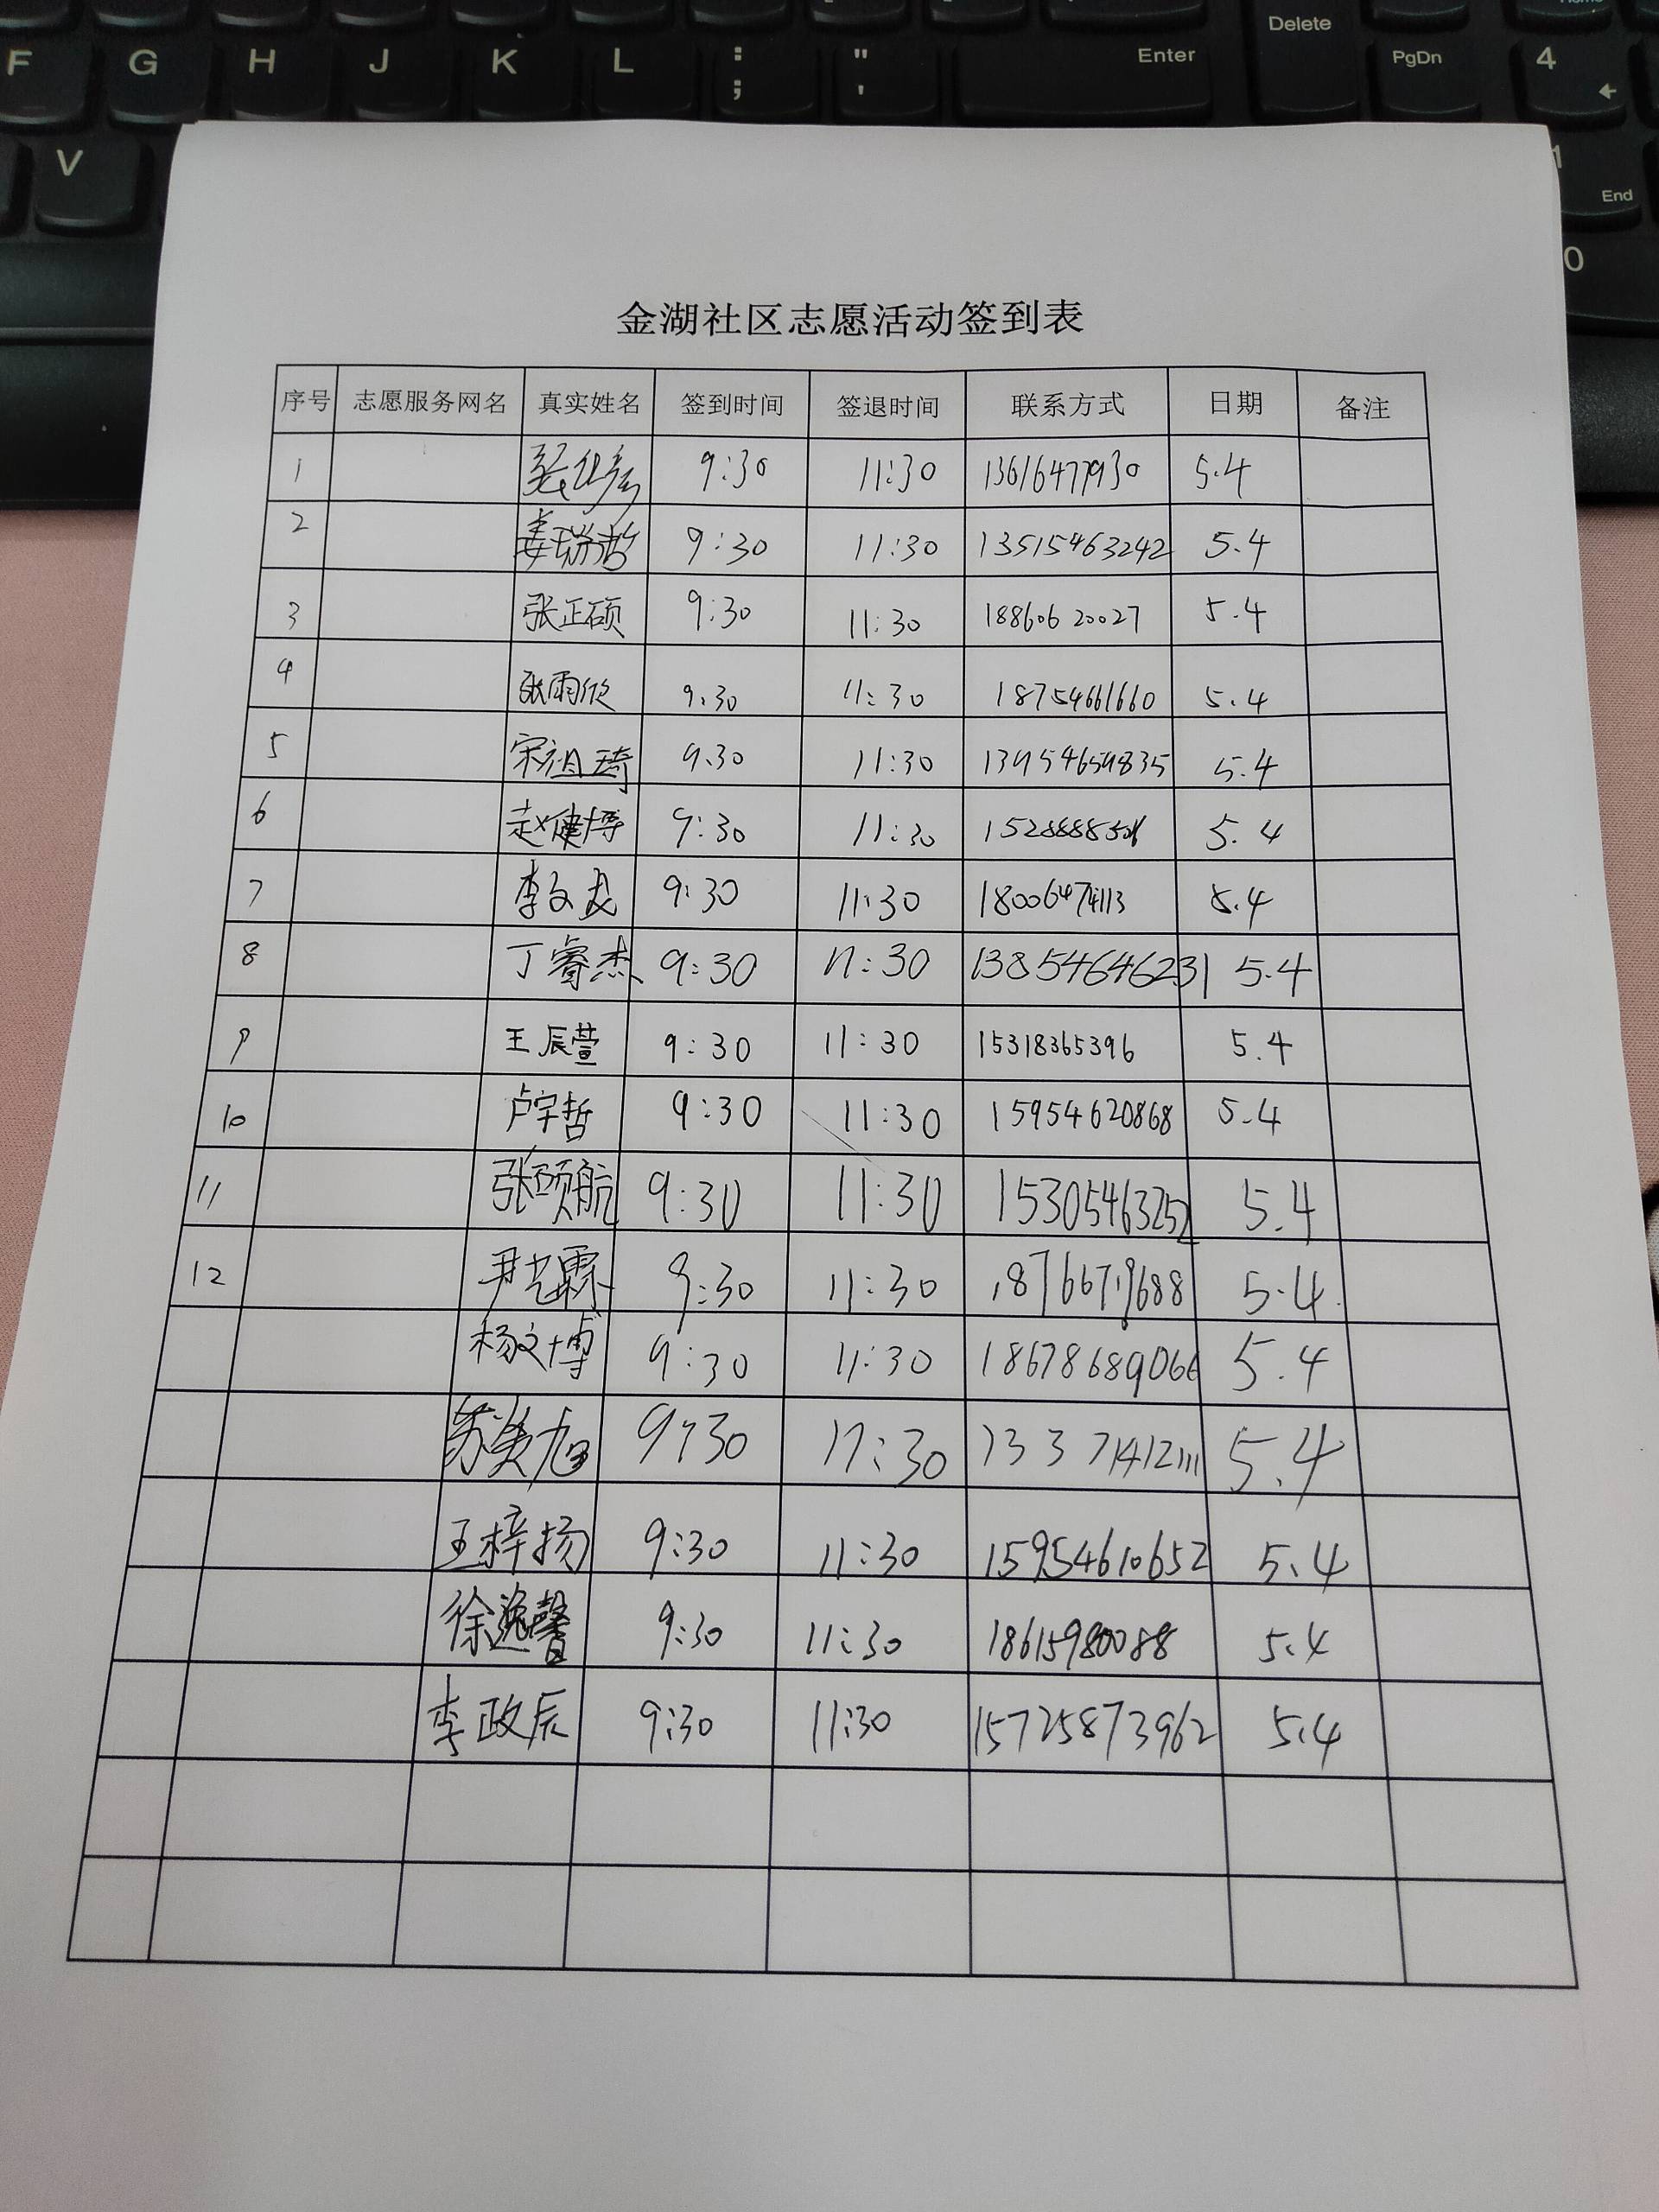 Delete
Home
F G H J K L : ; " ' Enter PgDn 4
V 1 End
0
金湖社区志愿活动签到表
序号 志愿服务网名 真实姓名 签到时间 签退时间 联系方式 日期 备注
1 9:30 11:30 13616477930 5.4
2 姜瑞哲 9:30 11:30 13515463242 5.4
3 张正硕 9:30 11:30 18860620027 5.4
4 张雨欣 9:30 11:30 18754661660 5.4
5 宋祖琦 9:30 11:30 13954659835 5.4
6 赵健博 9:30 11:30 5.4
7 李文龙 9:30 11:30 18006474113 5.4
8 丁睿杰 9:30 11:30 13854646231 5.4
9 王辰萱 9:30 11:30 15318365396 5.4
10 卢宇哲 9:30 11:30 15954620868 5.4
11 张硕航 9:30 11:30 15305463252 5.4
12 9:30 11:30 5.4
杨文博 9:30 11:30 18678689066 5.4
9:30 11:30 13371412111 5.4
王梓扬 9:30 11:30 15954610652 5.4
徐逸馨 9:30 11:30 18615980088 5.4
李政辰 9:30 11:30 15725873962 5.4